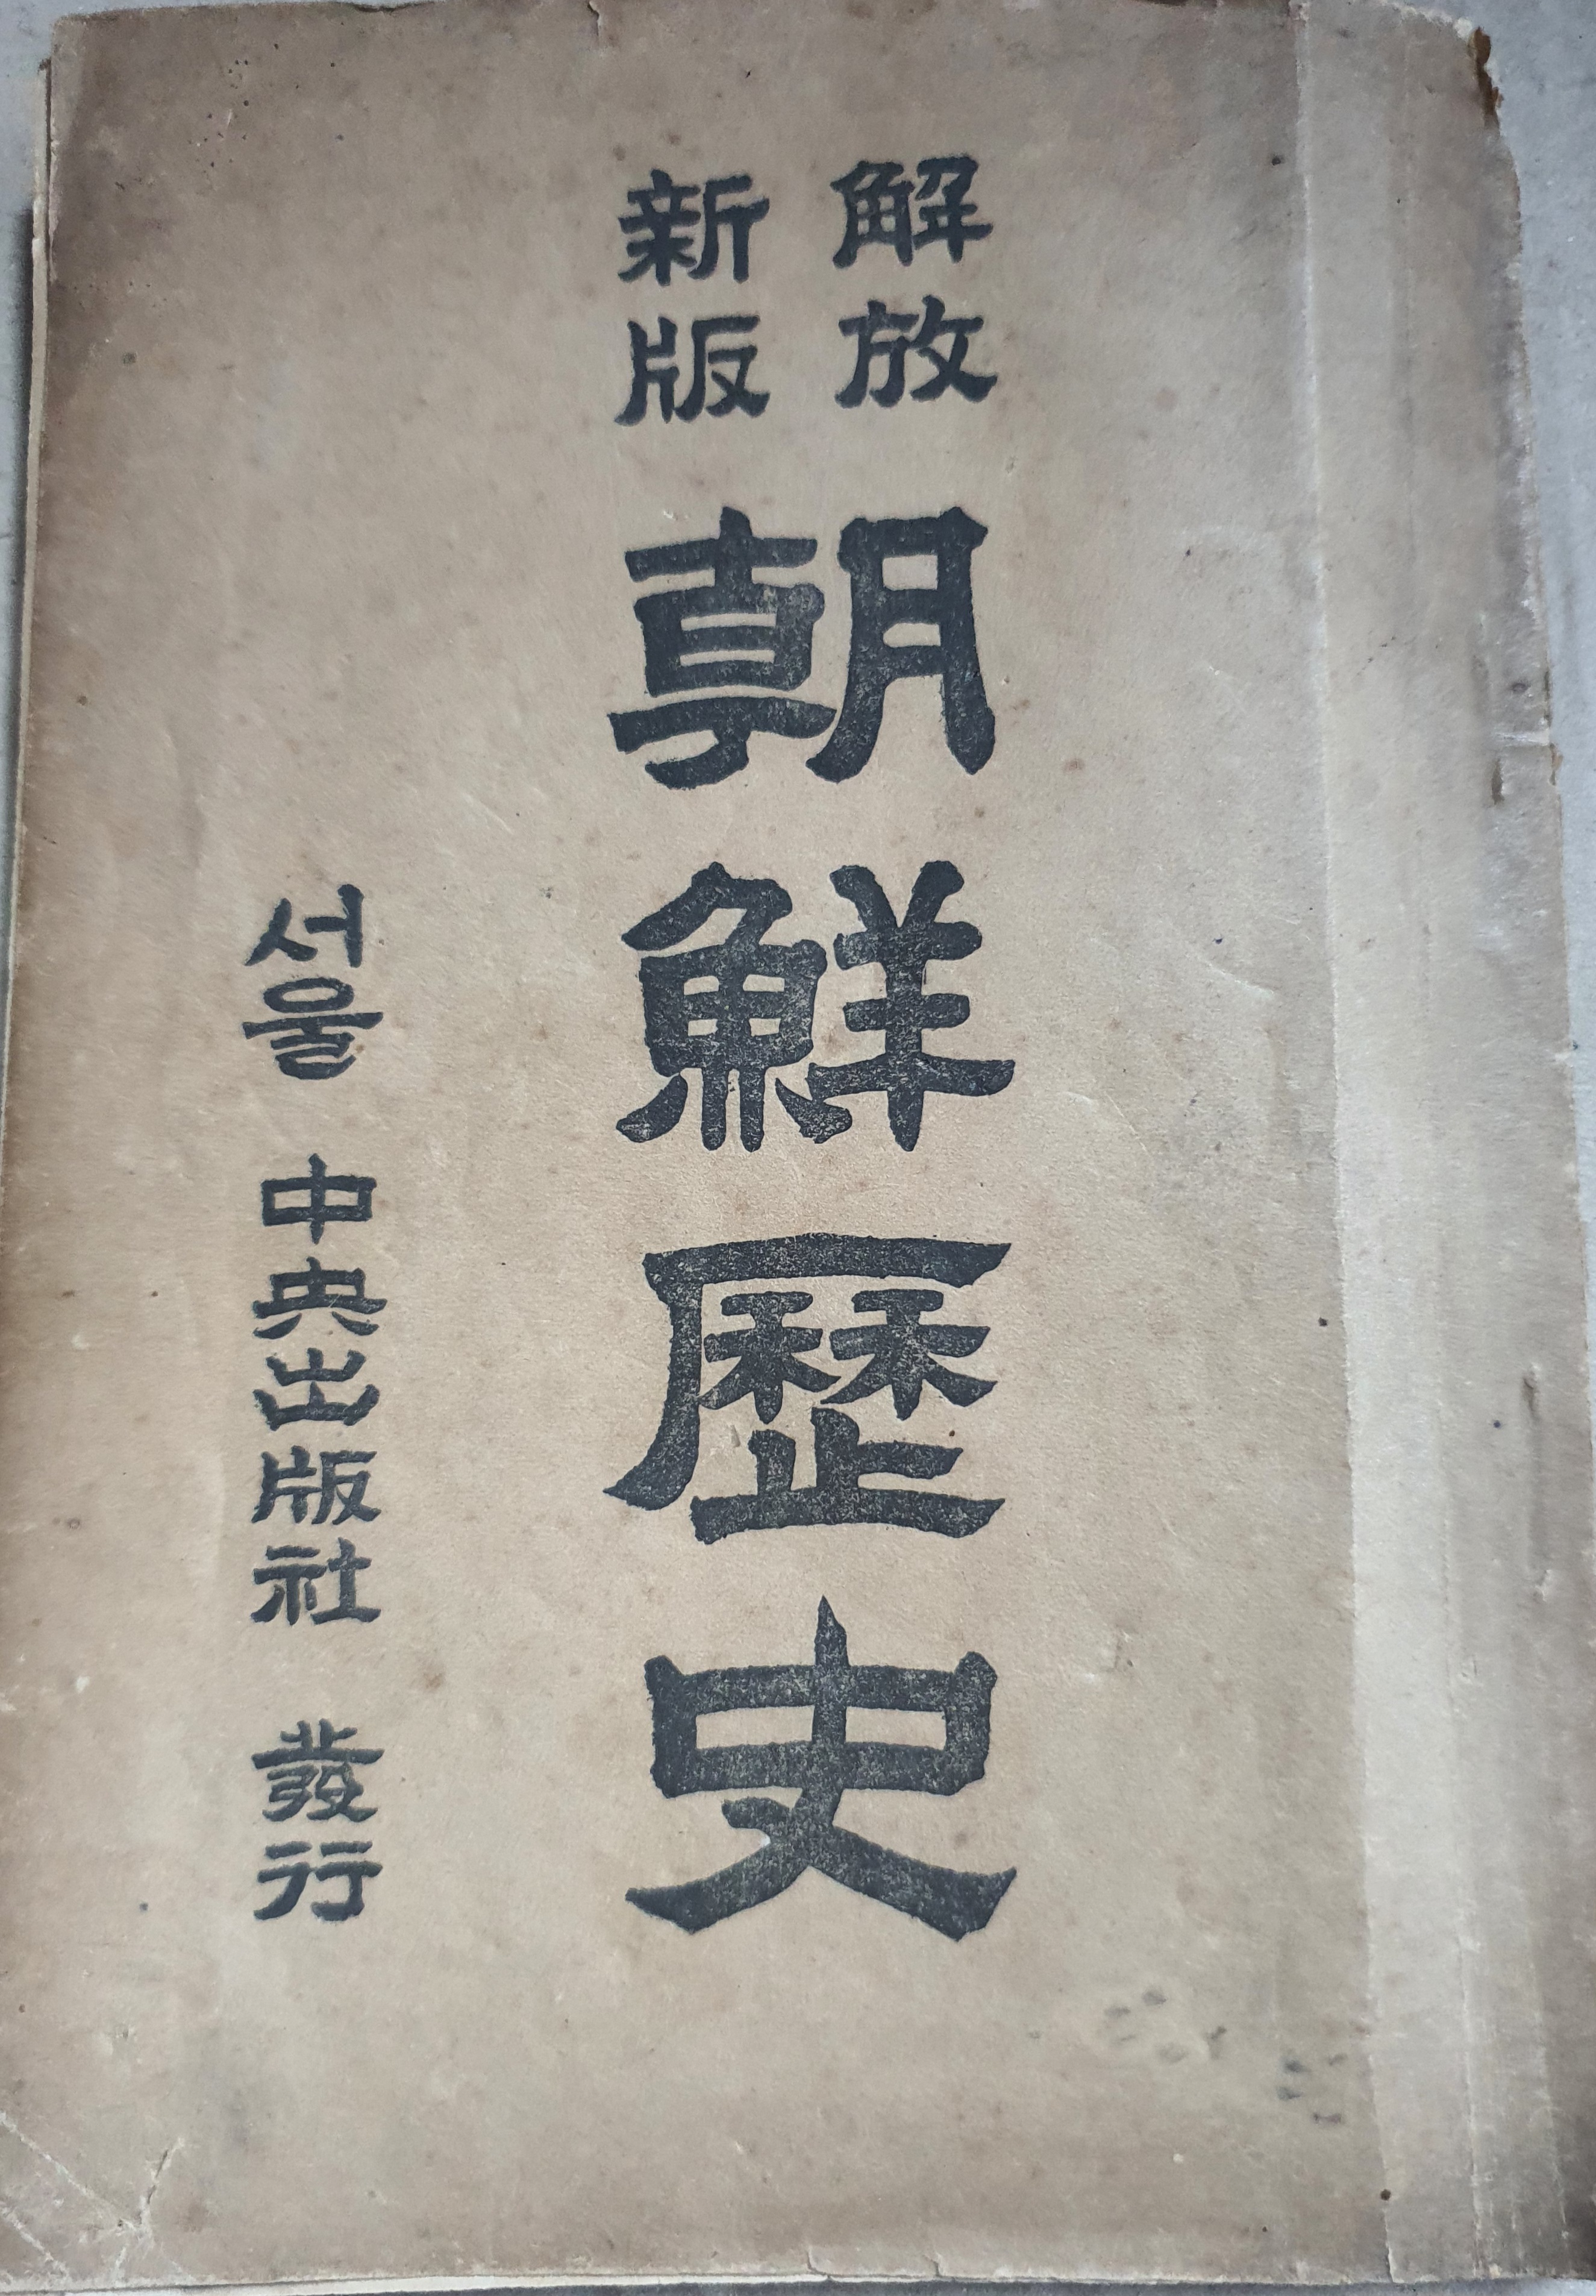 解放
新版
朝鮮歷史
서울 中央出版社 發行